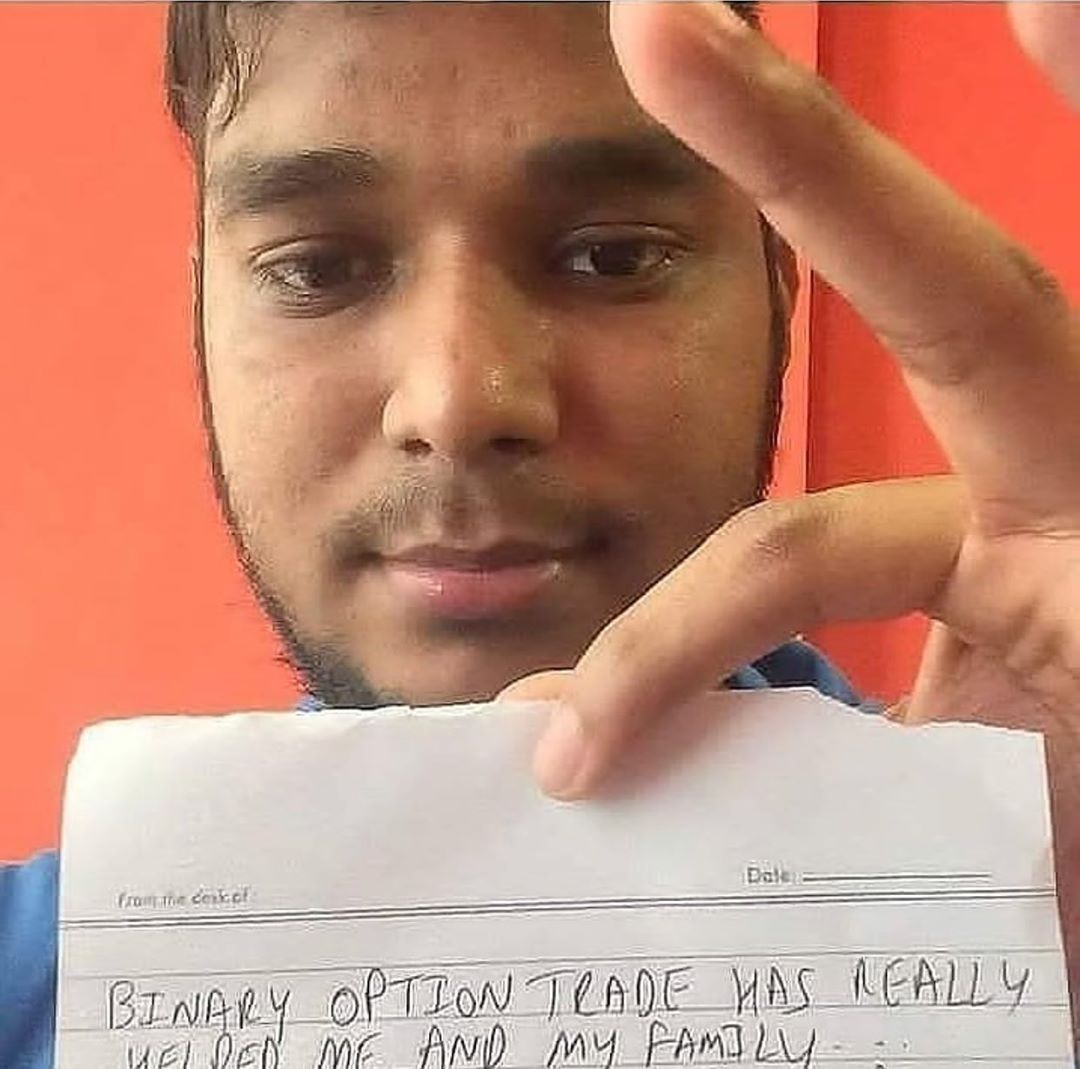 From the desk of :
Date:
BINARY OPTION TRADE HAS REALLY
HELPED ME AND MY FAMILY...